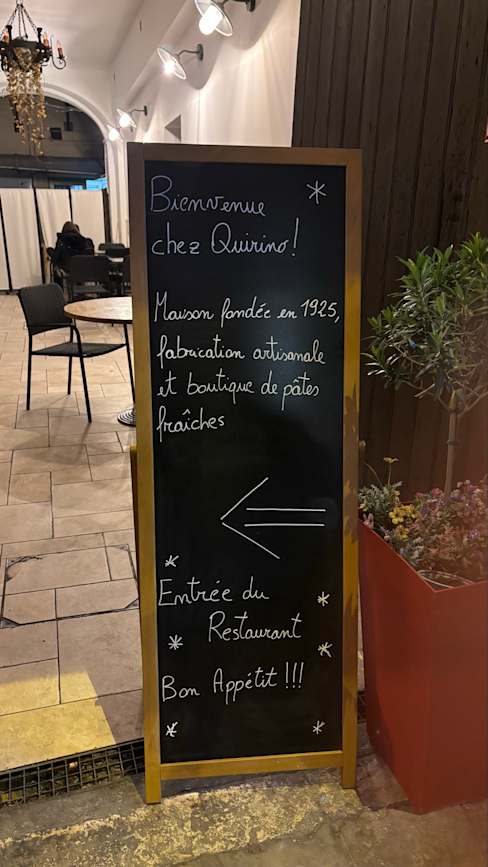 Bienvenue
chez Quirino!
Maison fondée en 1925,
fabrication artisanale
et boutique de pâtes
fraîches
Entrée du
Restaurant
Bon Appétit !!!